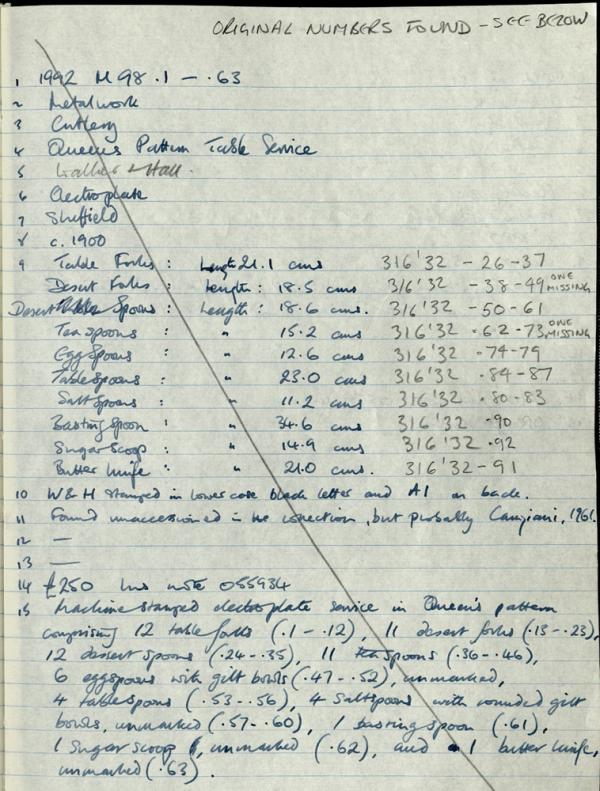 ORIGINAL NUMBERS FOUND - SEE BELOW
1 1992 M98.1 - .63
2 Metalwork
3 Cutlery
4 Queens Pattern Table Service
5 Walker & Hall.
6 Electroplate
7 Sheffield
8 c. 1900
9 Table Forks : Length 21.1 cms 316'32 - 26-37
Desert Forks : Length : 18.5 cms 316'32 - 38-49 ONE MISSING
Desert Spoons : Length : 18.6 cms. 316'32 - 50-61
Tea spoons : " 15.2 cms 316'32 .62-73, ONE MISSING
Egg Spoons : " 12.6 cms 316'32 .74-79
Table Spoons : " 23.0 cms 316'32 .84-87
Salt Spoons : " 11.2 cms 316'32 .80-83
Basting Spoon : " 34.6 cms 316'32 .90
Sugar Scoop : " 14.9 cms 316'32 .92
Butter Knife : " 21.0 cms. 316'32 - 91
10 W & H stamped in lower case black letter and A1 on back.
11 Found unaccessioned in the collection, but probably 1961.
12 —
13 —
14 £250 Ins note 055934
15 Machine stamped electroplate service in Queen's pattern
comprising 12 table forks (.1 - .12), 11 desert forks (.13 - .23),
12 dessert spoons (.24 - .35), 11 teaspoons (.36 - .46),
6 eggspoons with gilt bowls (.47 - .52), unmarked,
4 tablespoons (.53 - .56), 4 Saltspoons with rounded gilt
bowls, unmarked (.57 - .60), 1 basting spoon (.61),
1 Sugar scoop, unmarked (.62), and 1 butter knife,
unmarked (.63).